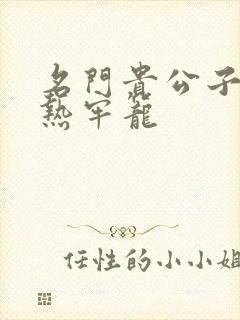 名門貴公子
熱牢籠
任性的小小姐